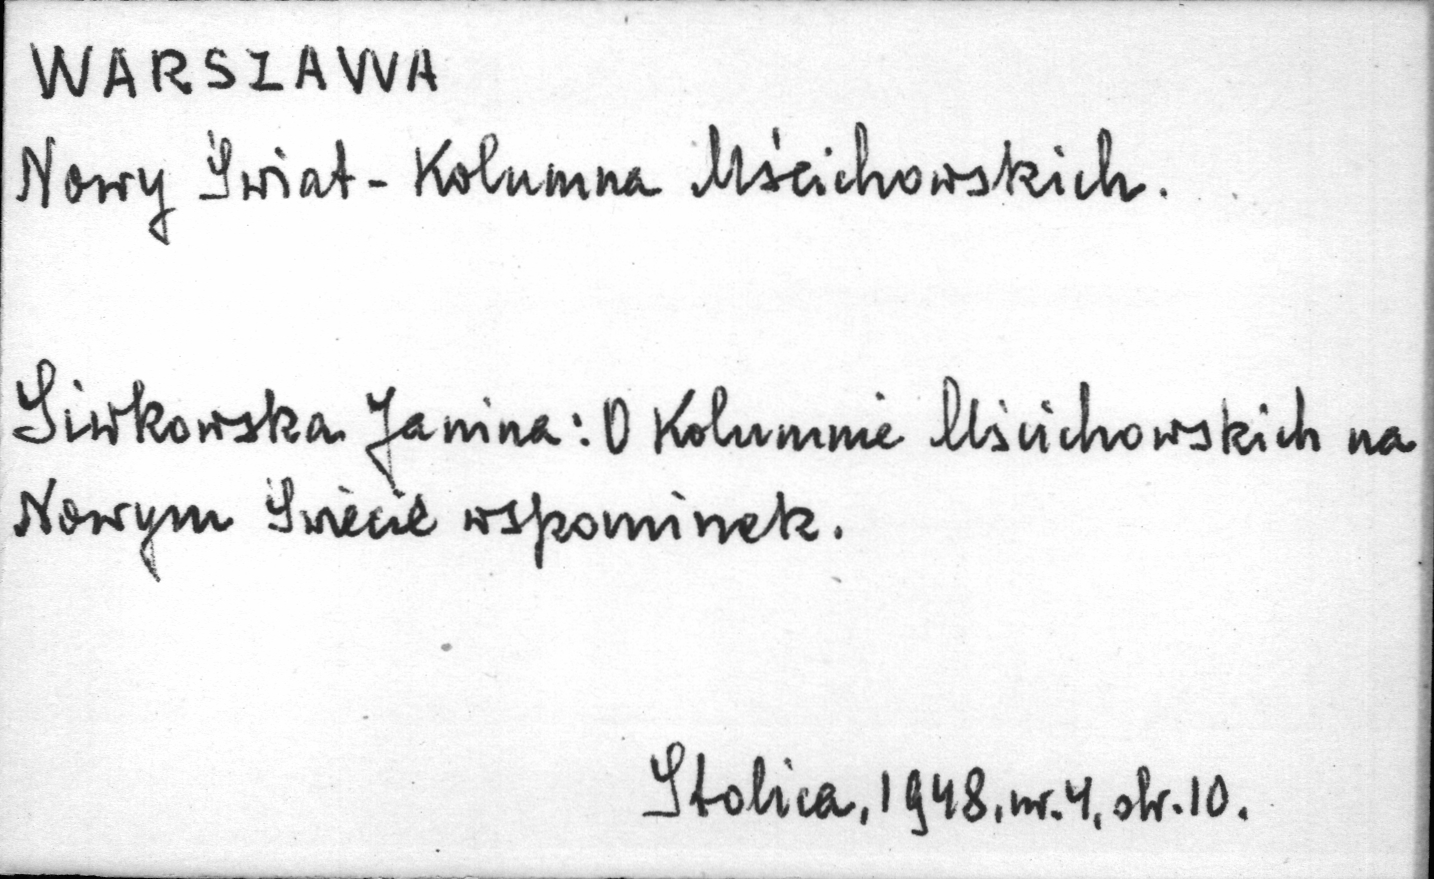 WARSZAWA
Nowy Świat - Kolumna Mścichowskich.
Siwkowska Janina: O Kolumnie Mścichowskich na
Nowym Świecie wspominek.
Stolica, 1948, nr. 4, str. 10.